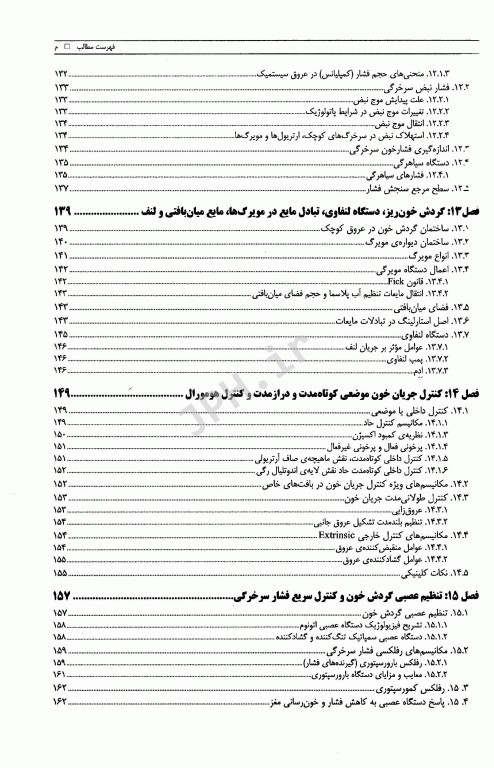 فهرست مطالب □ م
۱۲.۱.۳. منحنی‌های حجم فشار (کمپلیانس) در عروق سیستمیک ۱۳۲
۱۲.۲. فشار نبض سرخرگی ۱۳۳
۱۲.۲.۱. علت پیدایش موج نبض ۱۳۳
۱۲.۲.۲. تغییرات موج نبض در شرایط پاتولوژیک ۱۳۳
۱۲.۲.۳. انتقال موج نبض ۱۳۴
۱۲.۲.۴. استهلاک نبض در سرخرگ‌های کوچک، ارتریول‌ها و مویرگ‌ها ۱۳۴
۱۲.۳. اندازه‌گیری فشارخون سرخرگی ۱۳۴
۱۲.۴. دستگاه سیاهرگی ۱۳۵
۱۲.۴.۱. فشارهای سیاهرگی ۱۳۵
۱۲.۵. سطح مرجع سنجش فشار ۱۳۷
فصل ۱۳: گردش خون‌ریز، دستگاه لنفاوی، تبادل مایع در مویرگ‌ها، مایع میان‌بافتی و لنف ۱۳۹
۱۳.۱. ساختمان گردش خون در عروق کوچک ۱۳۹
۱۳.۲. ساختمان دیواره‌ی مویرگ ۱۴۰
۱۳.۳. انواع مویرگ ۱۴۱
۱۳.۴. اعمال دستگاه مویرگی ۱۴۲
۱۳.۴.۱. قانون Fick ۱۴۲
۱۳.۴.۲. انتقال مایعات تنظیم آب پلاسما و حجم فضای میان‌بافتی ۱۴۳
۱۳.۵. فضای میان‌بافتی ۱۴۳
۱۳.۶. اصل استارلینگ در تبادلات مایعات ۱۴۳
۱۳.۷. دستگاه لنفاوی ۱۴۵
۱۳.۷.۱. عوامل مؤثر بر جریان لنف ۱۴۶
۱۳.۷.۲. پمپ لنفاوی ۱۴۶
۱۳.۷.۳. ادم ۱۴۶
فصل ۱۴: کنترل جریان خون موضعی کوتاه‌مدت و درازمدت و کنترل هومورال ۱۴۹
۱۴.۱. کنترل داخلی یا موضعی ۱۴۹
۱۴.۱.۱. مکانیسم کنترل حاد ۱۴۹
۱۴.۱.۳. نظریه‌ی کمبود اکسیژن ۱۵۰
۱۴.۱.۴. پرخونی فعال و پرخونی غیرفعال ۱۵۱
۱۴.۱.۵. کنترل داخلی کوتاه‌مدت، نقش ماهیچه‌ی صاف آرتریولی ۱۵۱
۱۴.۱.۶. کنترل داخلی کوتاه‌مدت حاد نقش لایه‌ی اندوتلیال رگی ۱۵۲
۱۴.۲. مکانیسم‌های ویژه کنترل جریان خون در بافت‌های خاص ۱۵۲
۱۴.۳. کنترل طولانی‌مدت جریان خون ۱۵۳
۱۴.۳.۱. عروق‌زایی ۱۵۳
۱۴.۳.۲. تنظیم بلندمدت تشکیل عروق جانبی ۱۵۴
۱۴.۴. مکانیسم‌های کنترل خارجی Extrinsic ۱۵۴
۱۴.۴.۱. عوامل منقبض‌کننده‌ی عروق ۱۵۴
۱۴.۴.۲. عوامل گشادکننده‌ی عروق ۱۵۵
۱۴.۵. نکات کلینیکی ۱۵۵
فصل ۱۵: تنظیم عصبی گردش خون و کنترل سریع فشار سرخرگی ۱۵۷
۱۵.۱. تنظیم عصبی گردش خون ۱۵۷
۱۵.۱.۱. تشریح فیزیولوژیک دستگاه عصبی اتونوم ۱۵۸
۱۵.۱.۲. دستگاه عصبی سمپاتیک تنگ‌کننده و گشادکننده ۱۵۸
۱۵.۲. مکانیسم‌های رفلکسی فشار سرخرگی ۱۵۹
۱۵.۲.۱. رفلکس بارورسپتوری (گیرنده‌های فشار) ۱۵۹
۱۵.۲.۲. معایب و مزایای دستگاه بارورسپتوری ۱۶۱
۱۵. ۳. رفلکس کمورسپتوری ۱۶۲
۱۵. ۴. پاسخ دستگاه عصبی به کاهش فشار و خون‌رسانی مغز ۱۶۲
JPH.ir